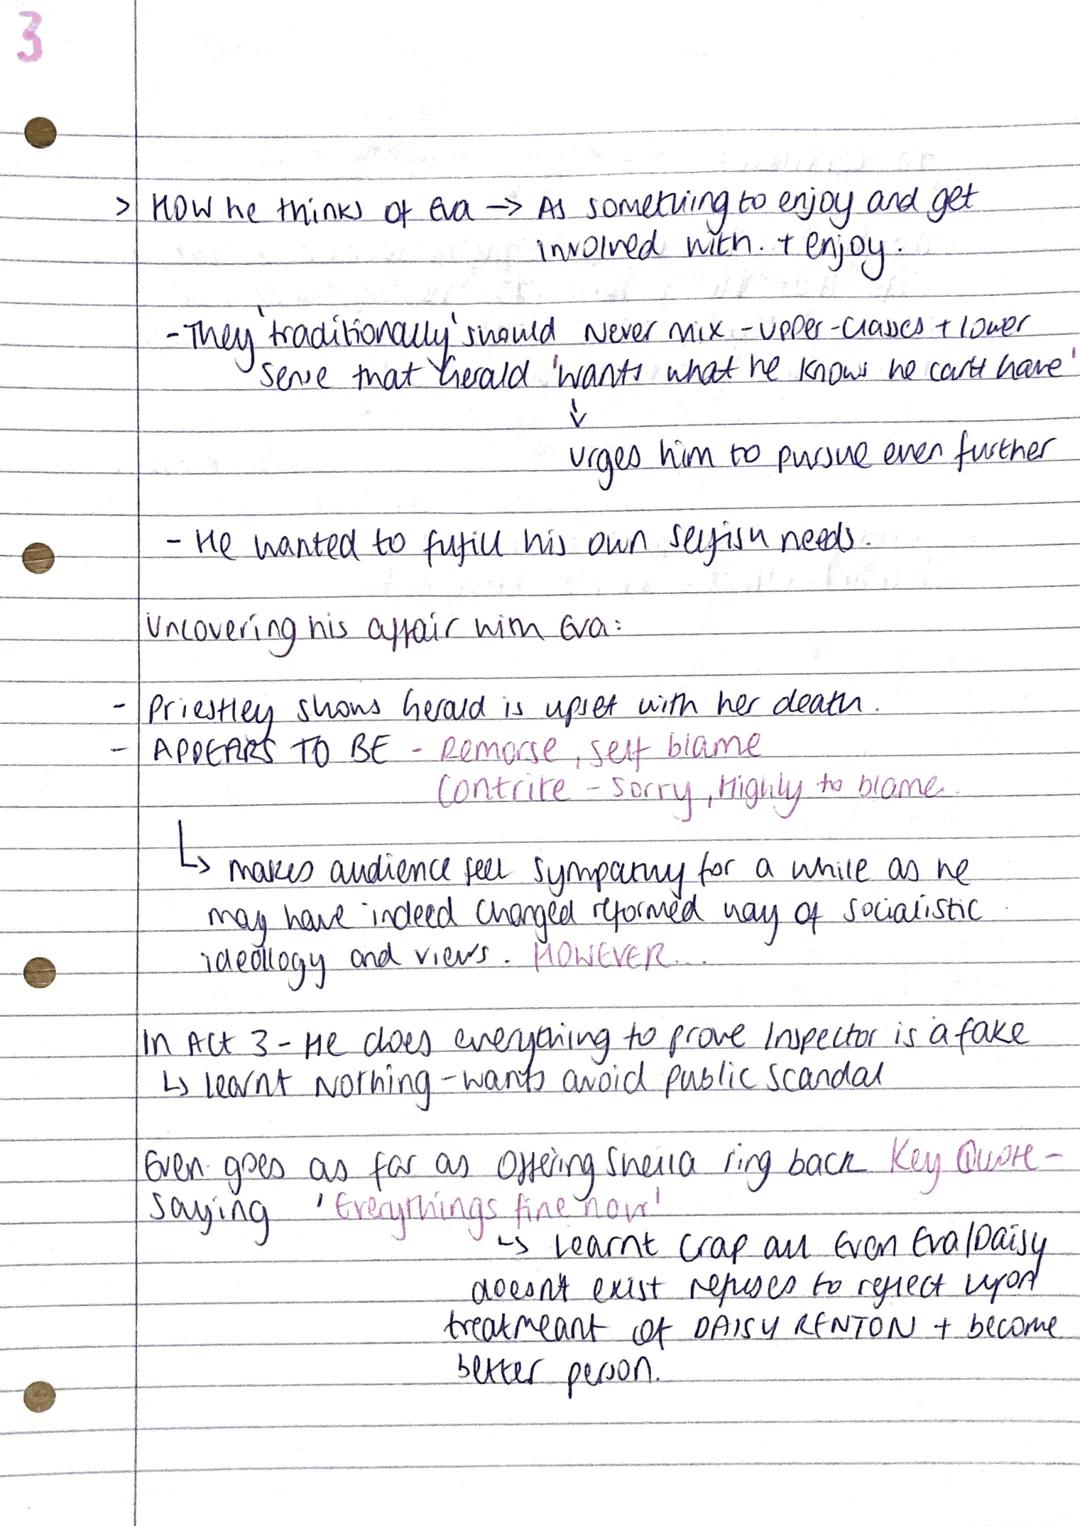 3
> HOW he thinks of Eva → As something to enjoy and get
involved with. + enjoy.
- They 'traditionally' should Never mix - upper-classes + lower
Serve that Gerald 'wants what he knows he can't have'
↓
urges him to pursue even further
- He wanted to fufill his own selfish needs.
Uncovering his affair with Eva:
- Priestley shows Gerald is upset with her death.
- APPEARS TO BE - Remorse, self blame
Contrite - Sorry, Highly to blame.
↳ makes audience feel sympathy for a while as he
may have indeed changed reformed way of socialistic
ideollogy and views. HOWEVER...
In Act 3 - He does everything to prove Inspector is a fake
↳ learnt Nothing - wants avoid public scandal
Even goes as far as offering Sheila ring back Key Quote -
saying 'Everythings fine now'
↳ Learnt crap all Even Eva/Daisy
doesn't exist refuses to reflect upon
treatmeant of DAISY RENTON + become
better person.